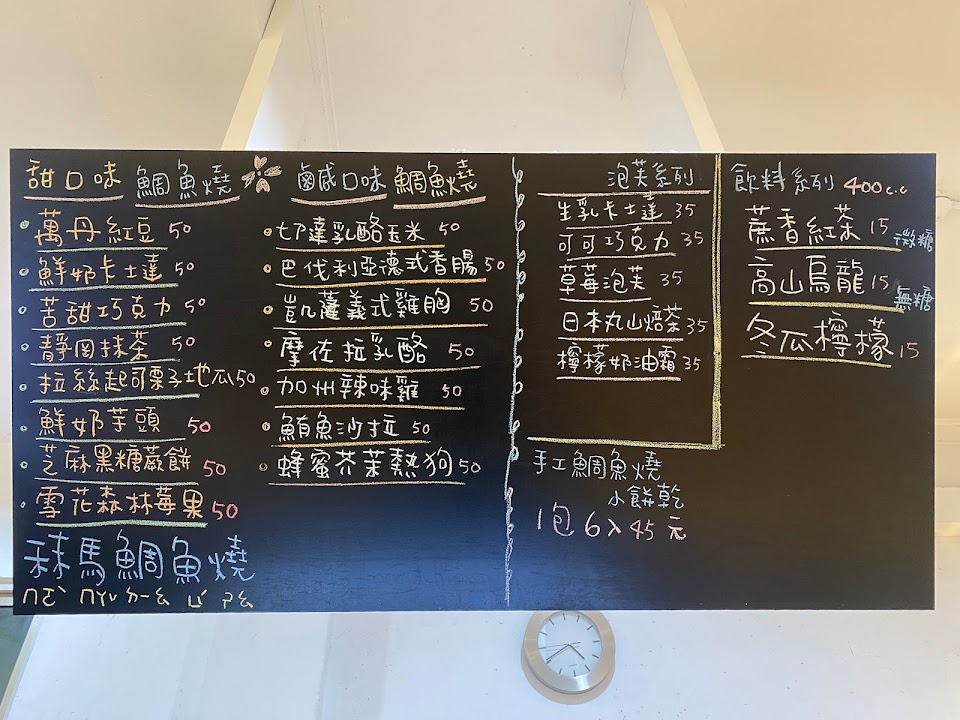 甜口味 鯛魚燒
萬丹紅豆 50
鮮奶卡士達 50
苦甜巧克力 50
靜岡抹茶 50
拉絲起司栗子地瓜 50
鮮奶芋頭 50
芝麻黑糖蕨餅 50
雪花森林莓果 50
秣馬鯛魚燒
ㄇㄛˋ ㄇㄚˇ ㄉㄧㄠ ㄩˊ ㄕㄠ
鹹口味 鯛魚燒
切達乳酪玉米 50
巴伐利亞德式香腸 50
凱薩義式雞胸 50
摩佐拉乳酪 50
加州辣味雞 50
鮪魚沙拉 50
蜂蜜芥茉熱狗 50
泡芙系列
生乳卡士達 35
可可巧克力 35
草莓泡芙 35
日本丸山焙茶 35
檸檬奶油霜 35
手工鯛魚燒
小餅乾
1包6入45元
飲料系列 400c.c
蔗香紅茶 15 微糖
高山烏龍 15 無糖
冬瓜檸檬 15